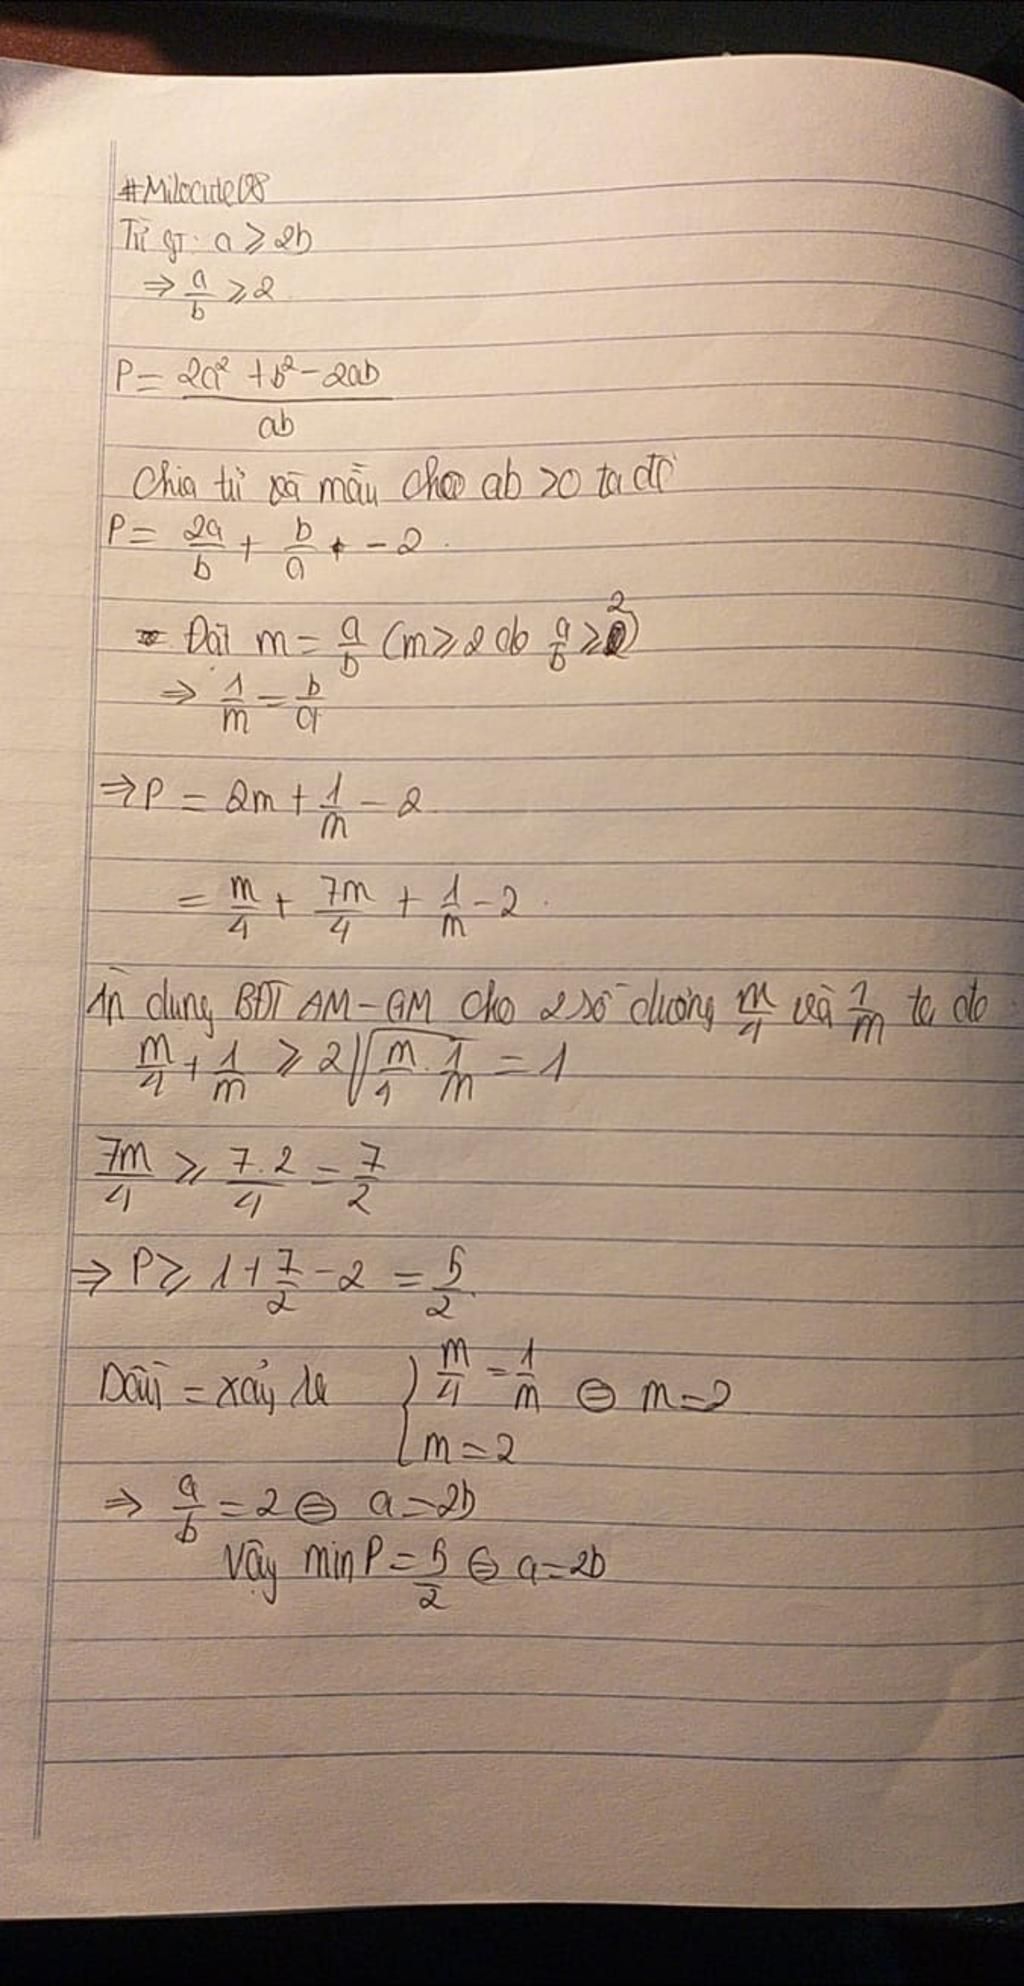 #Milocute08
Từ gt: a ≥ 2b
⇒ a/b ≥ 2
P = (2a² + b² - 2ab)/ab
Chia tử và mẫu cho ab >0 ta đc
P = 2a/b + b/a - 2
Đặt m = a/b (m ≥ 2 do a/b ≥ 2)
⇒ 1/m = b/a
⇒ P = 2m + 1/m - 2
= m/4 + 7m/4 + 1/m - 2
dụng BĐT AM-GM cho 2 số dương m/4 và 1/m ta đc
m/4 + 1/m ≥ 2√(m/4 . 1/m) = 1
7m/4 ≥ 7.2/4 = 7/2
⇒ P ≥ 1 + 7/2 - 2 = 5/2
Dấu = xảy { m/4 = 1/m ⇔ m = 2
m = 2
⇒ a/b = 2 ⇔ a = 2b
Vậy min P = 5/2 ⇔ a = 2b